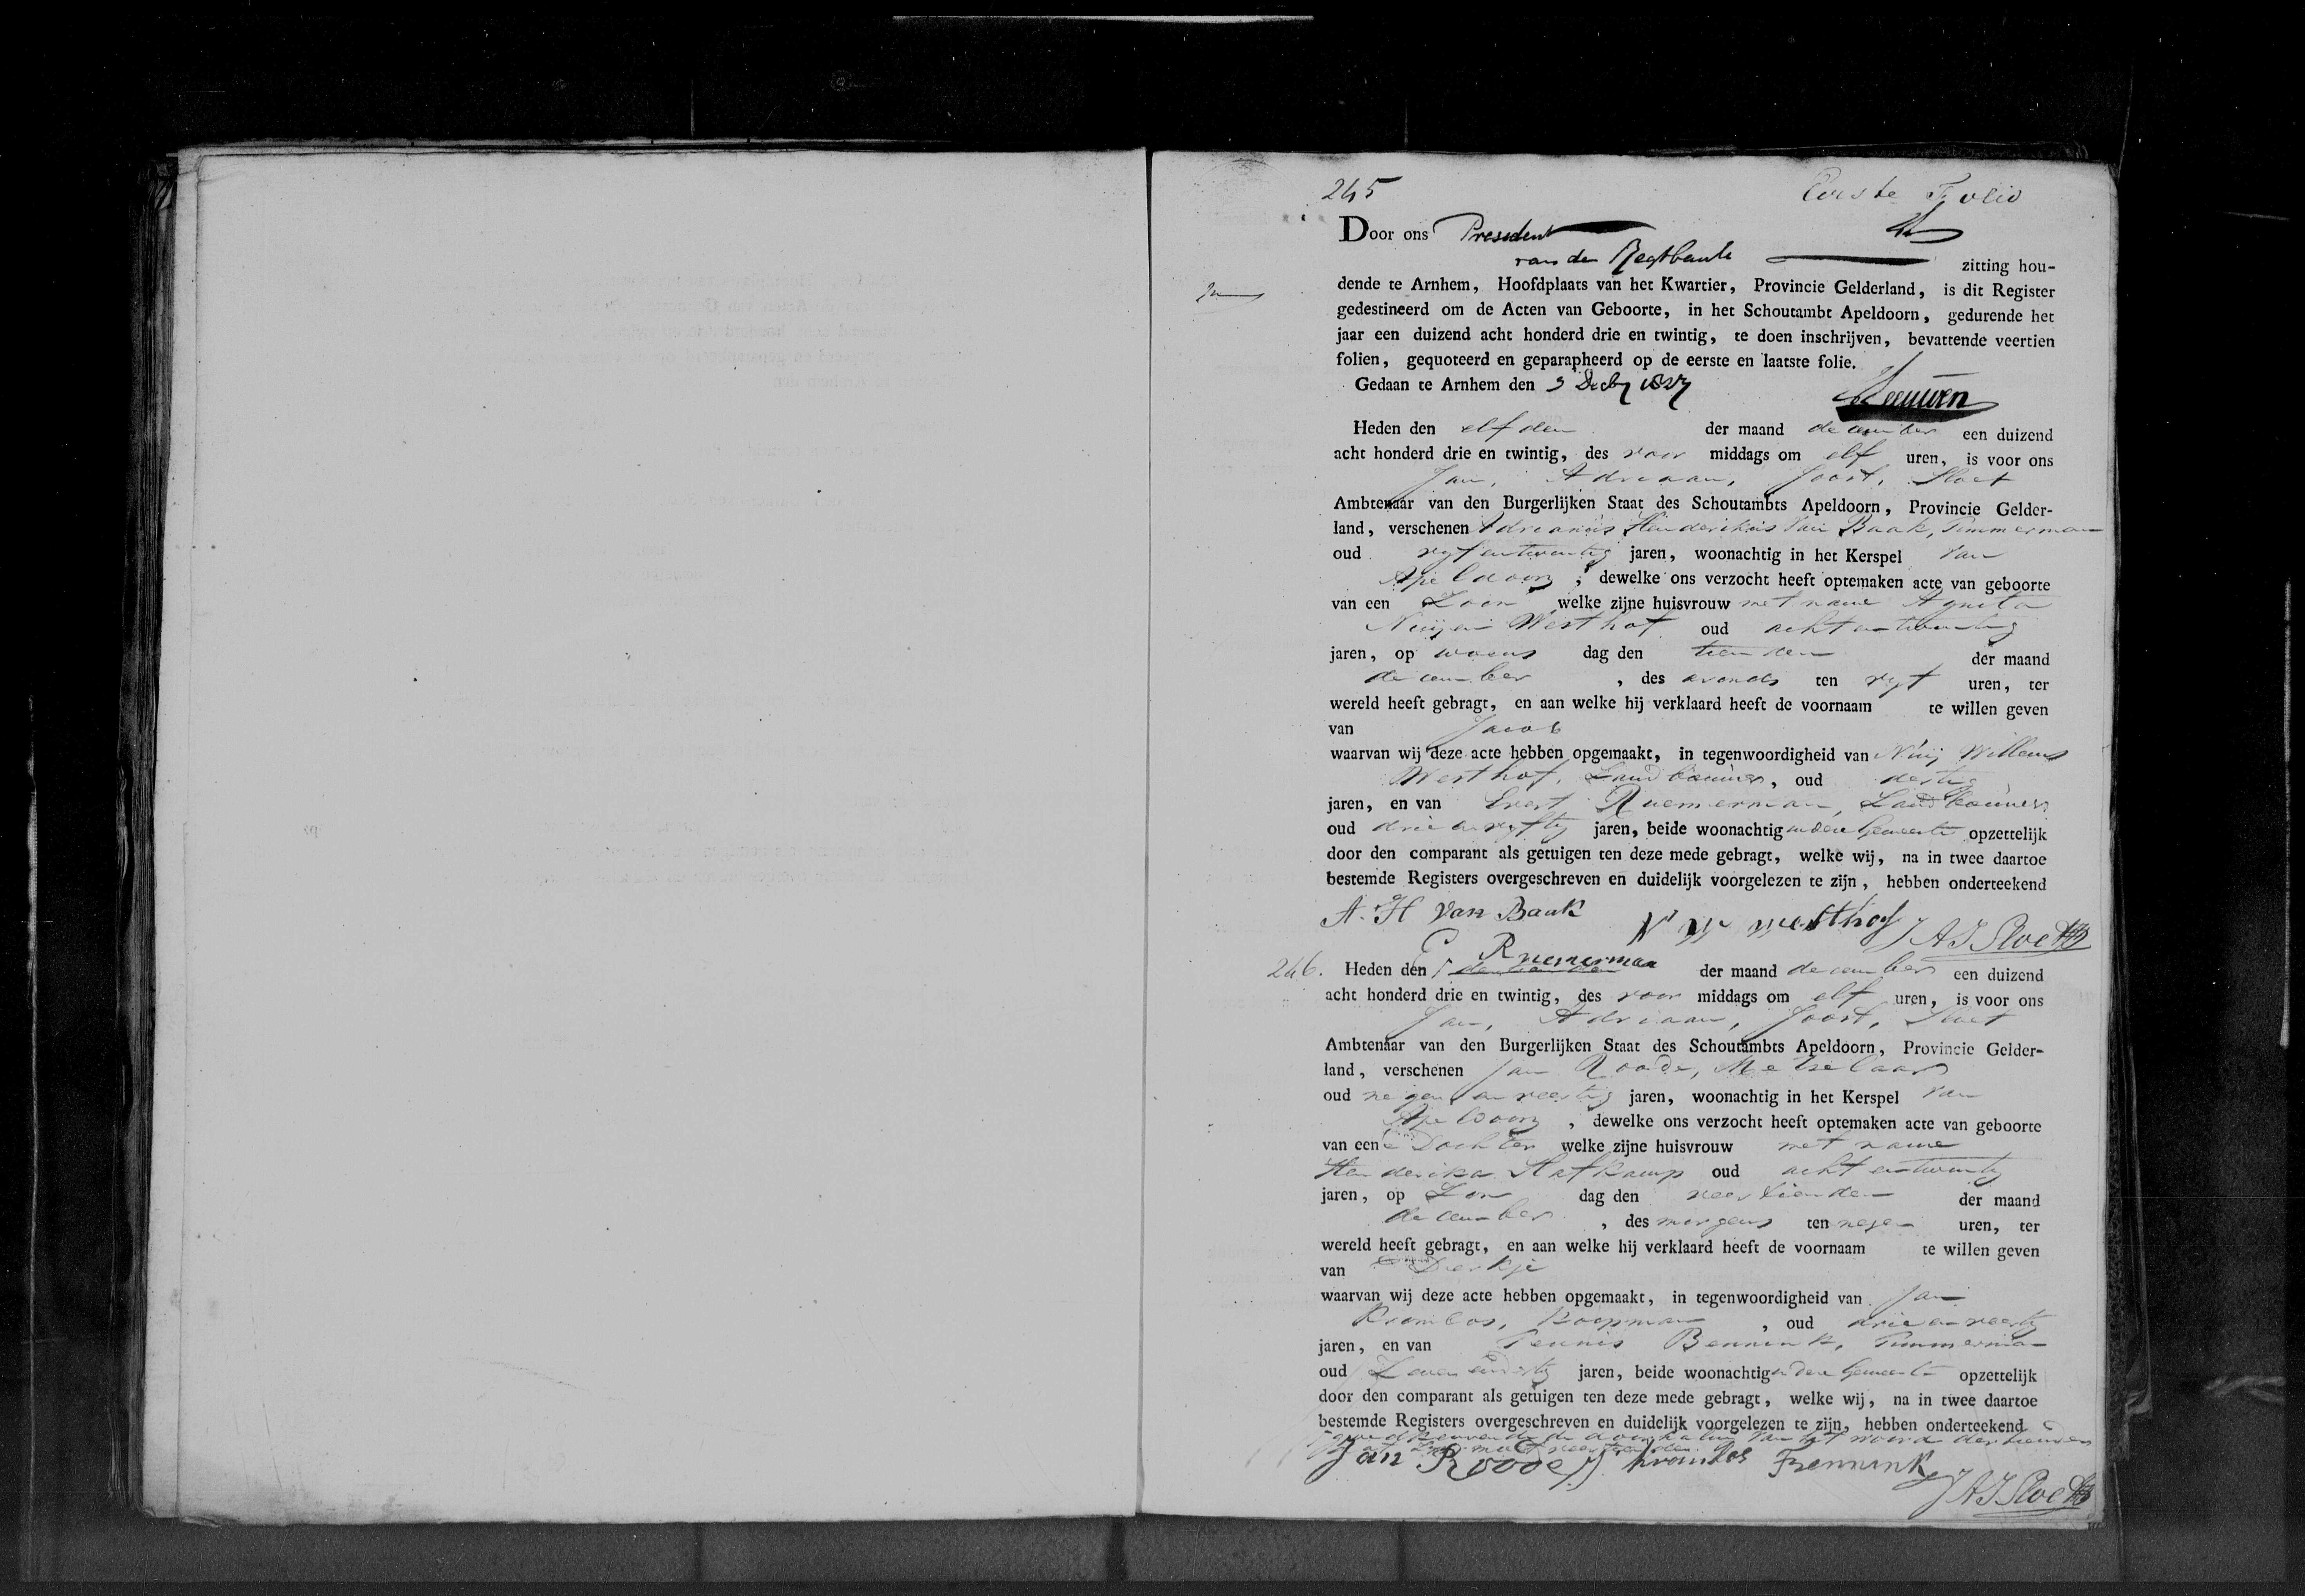 245 Eerste Folio
Door ons President
van de Regtbank zitting hou-
dende te Arnhem, Hoofdplaats van het Kwartier, Provincie Gelderland, is dit Register
gedestineerd om de Acten van Geboorte, in het Schoutambt Apeldoorn, gedurende het
jaar een duizend acht honderd drie en twintig, te doen inschrijven, bevattende veertien
folien, gequoteerd en geparapheerd op de eerste en laatste folie.
Gedaan te Arnhem den 9
Heden den elfden der maand december een duizend
acht honderd drie en twintig, des voor middags om elf uren, is voor ons
Jan, Adriaan, Joost, Sloet
Ambtenaar van den Burgerlijken Staat des Schoutambts Apeldoorn, Provincie Gelder-
land, verschenen Adrianus Hendrikus Van Baak, Timmerman
oud vyfentwintig jaren, woonachtig in het Kerspel Van
Apeldoorn, dewelke ons verzocht heeft optemaken acte van geboorte
van een Zoon welke zijne huisvrouw met name
Westhof oud achtentwintig
jaren, op woens dag den tienden der maand
december, des avonds ten vyf uren, ter
wereld heeft gebragt, en aan welke hij verklaard heeft de voornaam te willen geven
van Jacob
waarvan wij deze acte hebben opgemaakt, in tegenwoordigheid van Willems
Westhof, Landbouwer, oud dertig
jaren, en van Evert Ruemerman, Landbouwer
oud drieenvyftig jaren, beide woonachtig in deze Gemeente opzettelijk
door den comparant als getuigen ten deze mede gebragt, welke wij, na in twee daartoe
bestemde Registers overgeschreven en duidelijk voorgelezen te zijn, hebben onderteekend
A. H Van Baak N W Westhof J A J Sloet
E Ruemerman
246. Heden den der maand december een duizend
acht honderd drie en twintig, des voor middags om elf uren, is voor ons
Jan, Adriaan, Joost, Sloet
Ambtenaar van den Burgerlijken Staat des Schoutambts Apeldoorn, Provincie Gelder-
land, verschenen Jan Roode, Metselaar
oud negen en veertig jaren, woonachtig in het Kerspel Van
Apeldoorn, dewelke ons verzocht heeft optemaken acte van geboorte
van eene Dochter welke zijne huisvrouw met name
Henderika Slatkamp oud acht entwintig
jaren, op Zon dag den veertienden der maand
december, des morgens ten negen uren, ter
wereld heeft gebragt, en aan welke hij verklaard heeft de voornaam te willen geven
van Derkje
waarvan wij deze acte hebben opgemaakt, in tegenwoordigheid van Jan
Krombos, Koopman, oud drieenveertig
jaren, en van Teunis Bennink, Timmerman
oud Zevenendertig jaren, beide woonachtig in deze Gemeente opzettelijk
door den comparant als getuigen ten deze mede gebragt, welke wij, na in twee daartoe
bestemde Registers overgeschreven en duidelijk voorgelezen te zijn, hebben onderteekend
goedkeurende de doorhaling van het woord dertienden
Jan Roode J krombos T Bennink
J A J Sloet